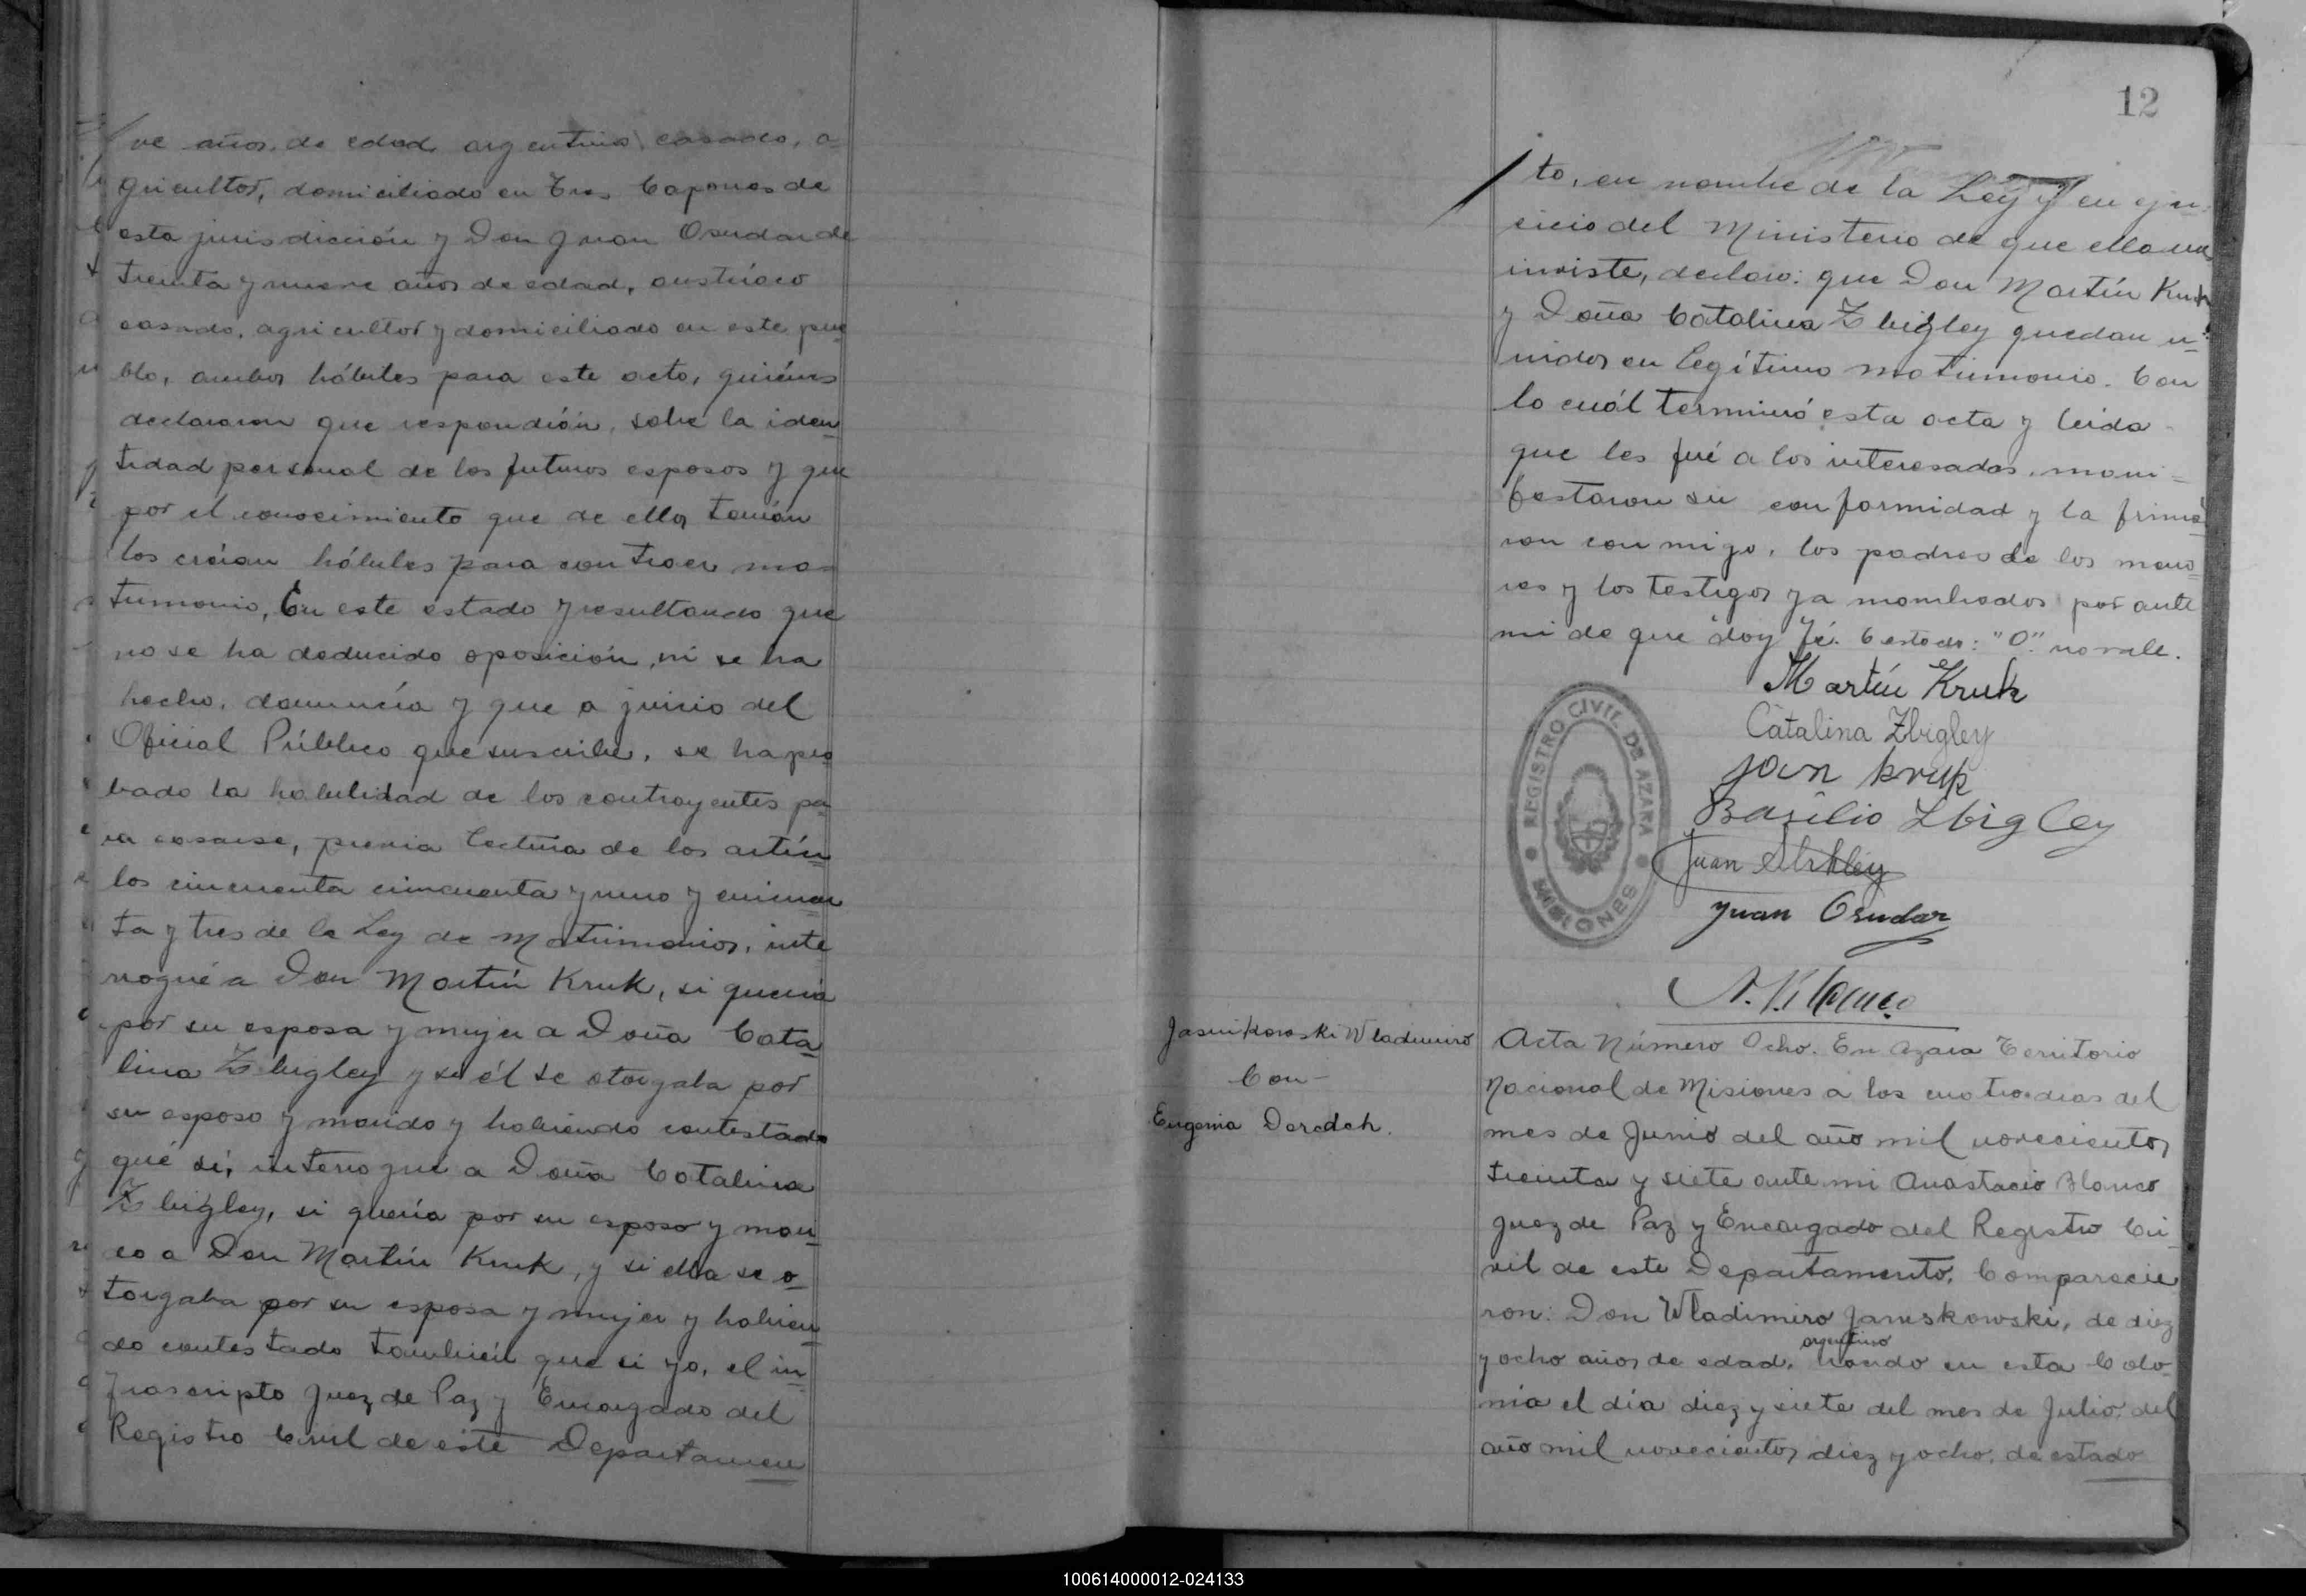 ve años de edad argentino casado, a-
gricultor, domiciliado en Tres Capones de
esta jurisdicción y Don Juan Osudar de
treinta y nueve años de edad, austríaco
casado, agricultor y domiciliado en este pue
blo, ambos hábiles para este acto, quiénes
declararon que respondían, sobre la iden
tidad personal de los futuros esposos y que
por el conocimiento que de ellos tenían
los creían hábiles para contraer ma-
trimonio, En este estado y resultando que
no se ha deducido oposición, ni se ha
hecho, denuncía y que a juicio del
Oficial Público que suscribe, se ha pro
bado la habilidad de los contrayentes pa
ra casarse, previa lectura de los artícu
los cincuenta cincuenta y uno y cincuen
ta y tres de la Ley de Matrimonios, inte
rrogué a Don Martín Kruk, si quería
por su esposa y mujer a Doña Cata
lina Zbigley y si él se otorgaba por
su esposo y marido y habiendo contestado
qué sí, interrogué a Doña Catalina
Zbigley, si quería por su esposo y mari
do a Don Martín Kruk, y si ella se o
torgaba por su esposa y mujer y habien
do contestado también que si yo, el in
frascripto Juez de Paz y Encargado del
Registro Civil de este Departamen
12
to, en nombre de la Ley y en ejer
cicio del Ministerio de que ella me
inviste, declaro: que Don Martín Kruk
y Doña Catalina Zbigley quedan u-
nidos en legítimo matrimonio. Con
lo cuál terminó esta acta y leída
que les fué a los interesados, mani-
festaron su conformidad y la firma
ron con migo, los padres de los meno
res y los testigos ya nombrados por ante
mi de que doy fé. Testado: "O". no vale.
Martín Kruk
Catalina Zbigley
Jan Kruk
Basilio Zbigley
Juan
Juan Osudar
REGISTRO CIVIL DE AZARA
MISIONES
A. Blanco
Jasnikowski Wladimiro
Con-
Eugenia Deredeh.
Acta Número Ocho. En Azara Territorio
Nacional de Misiones a los cuatro dias del
mes de Junio del año mil novecientos
treinta y siete ante mi Anastacio Blanco
Juez de Paz y Encargado del Registro Ci-
vil de este Departamento, Comparecie
ron: Don Wladimiro Janiskowski, de diez
argentino
y ocho años de edad, nacido en esta Colo-
nia el día diez y siete del mes de Julio, del
año mil novecientos diez y ocho, de estado
100614000012-024133